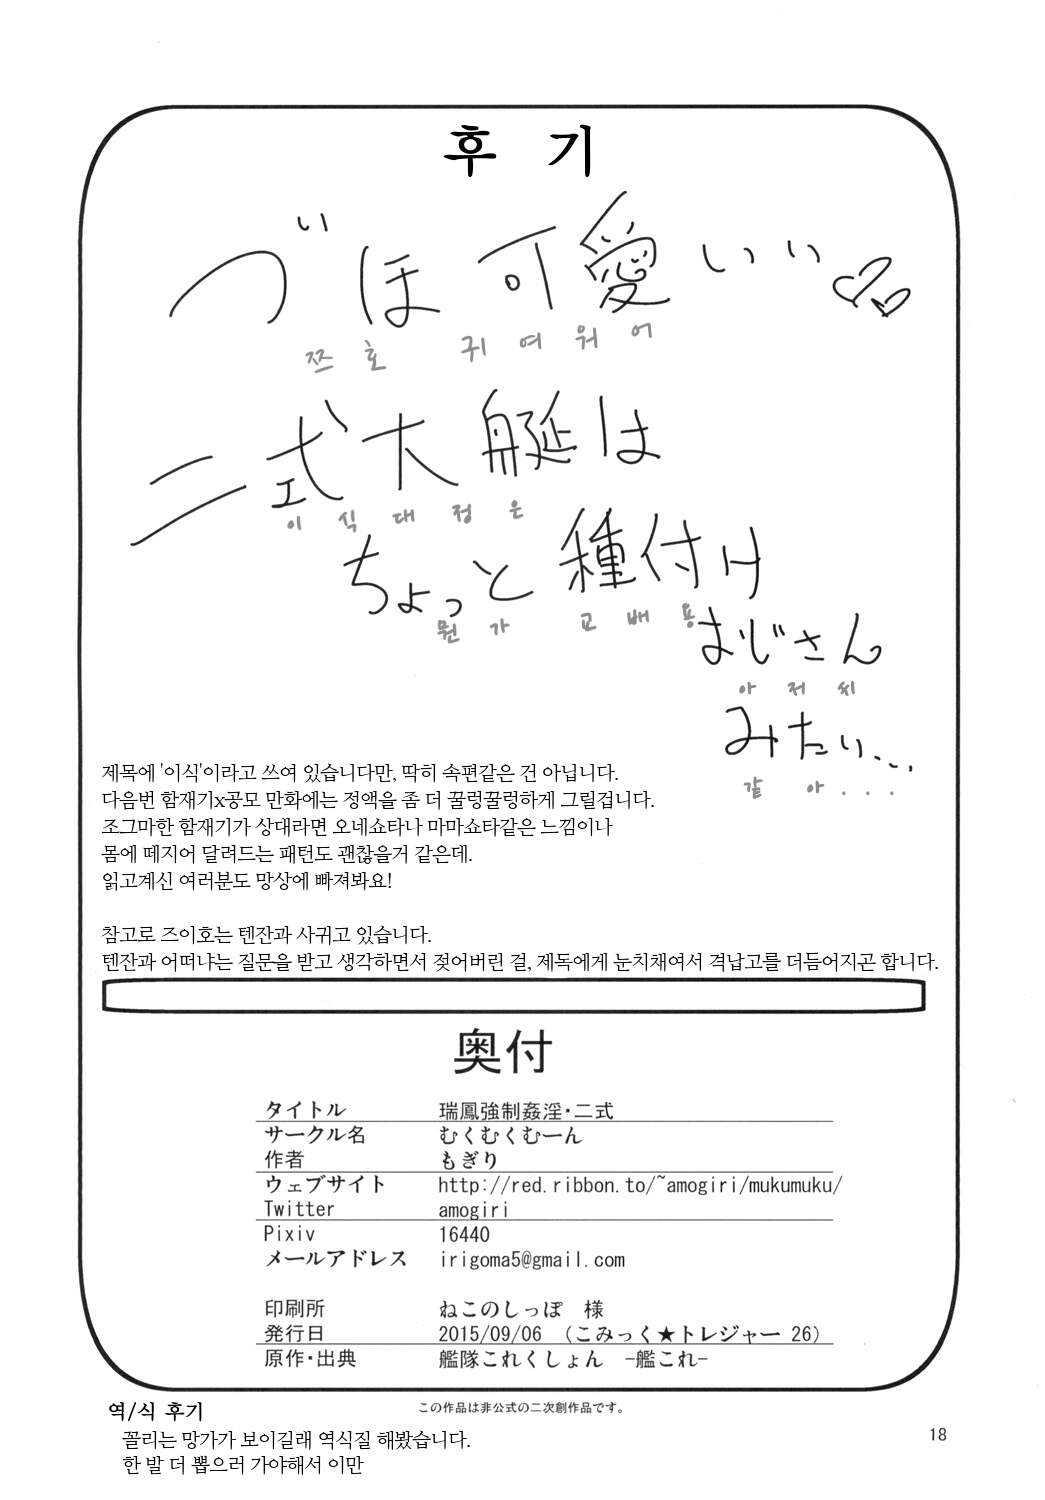 후 기
づぃほ可愛いい♡
쯔호 귀여워어
二式大艇は
이식대정은
ちょっと種付け
뭔가 교배용
おじさん
아저씨
みたい...
같아...
제목에 '이식'이라고 쓰여 있습니다만, 딱히 속편같은 건 아닙니다.
다음번 함재기x공모 만화에는 정액을 좀 더 꿀렁꿀렁하게 그릴겁니다.
조그마한 함재기가 상대라면 오네쇼타나 마마쇼타같은 느낌이나
몸에 떼지어 달려드는 패턴도 괜찮을거 같은데.
읽고계신 여러분도 망상에 빠져봐요!
참고로 즈이호는 텐잔과 사귀고 있습니다.
텐잔과 어떠냐는 질문을 받고 생각하면서 젖어버린 걸, 제독에게 눈치채여서 격납고를 더듬어지곤 합니다.
奥付
タイトル 瑞鳳強制姦淫・二式
サークル名 むくむくむーん
作者 もぎり
ウェブサイト http://red.ribbon.to/~amogiri/mukumuku/
Twitter amogiri
Pixiv 16440
メールアドレス irigoma5@gmail.com
印刷所 ねこのしっぽ 様
発行日 2015/09/06 (こみっく★トレジャー 26)
原作・出典 艦隊これくしょん -艦これ-
この作品は非公式の二次創作品です。
역/식 후기
꼴리는 망가가 보이길래 역식질 해봤습니다.
한 발 더 뽑으러 가야해서 이만
18